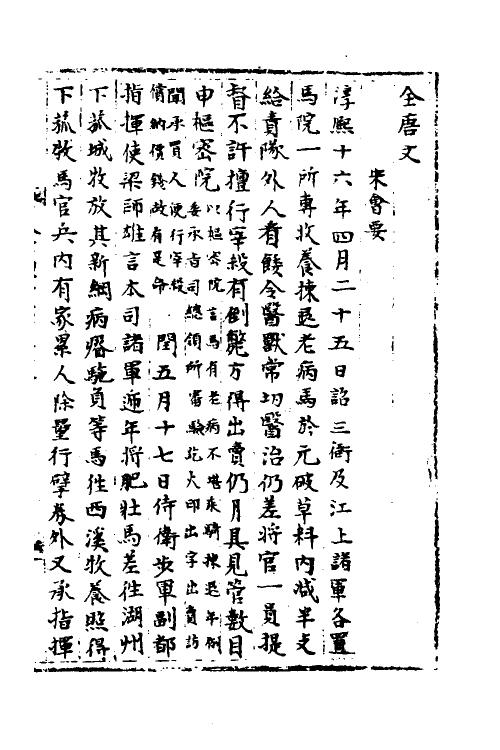 全唐文
宋會要
淳熙十六年四月二十五日詔三衙及江上諸軍各置
馬院一所專牧養揀退老病馬於元破草料内减半支
給責隊外人看餧令醫獸常切醫治仍差將官一員提
督不許擅行宰殺有倒斃方得出賣仍月具見管數目
申樞密院以樞密院言馬有老病不堪乘騎揀退年例
委承旨司總領所審驗訖火印出字出賣訪
聞承買人便行宰殺
償納價錢故有是命 閏五月十七日侍衛步軍副都
指揮使梁師雄言本司諸軍遞年將肥壯馬差往湖州
下菰城牧放其新綱病瘠騐負等馬往西溪牧養照得
下菰牧馬官兵内有家累人除量行擘券外又承指揮